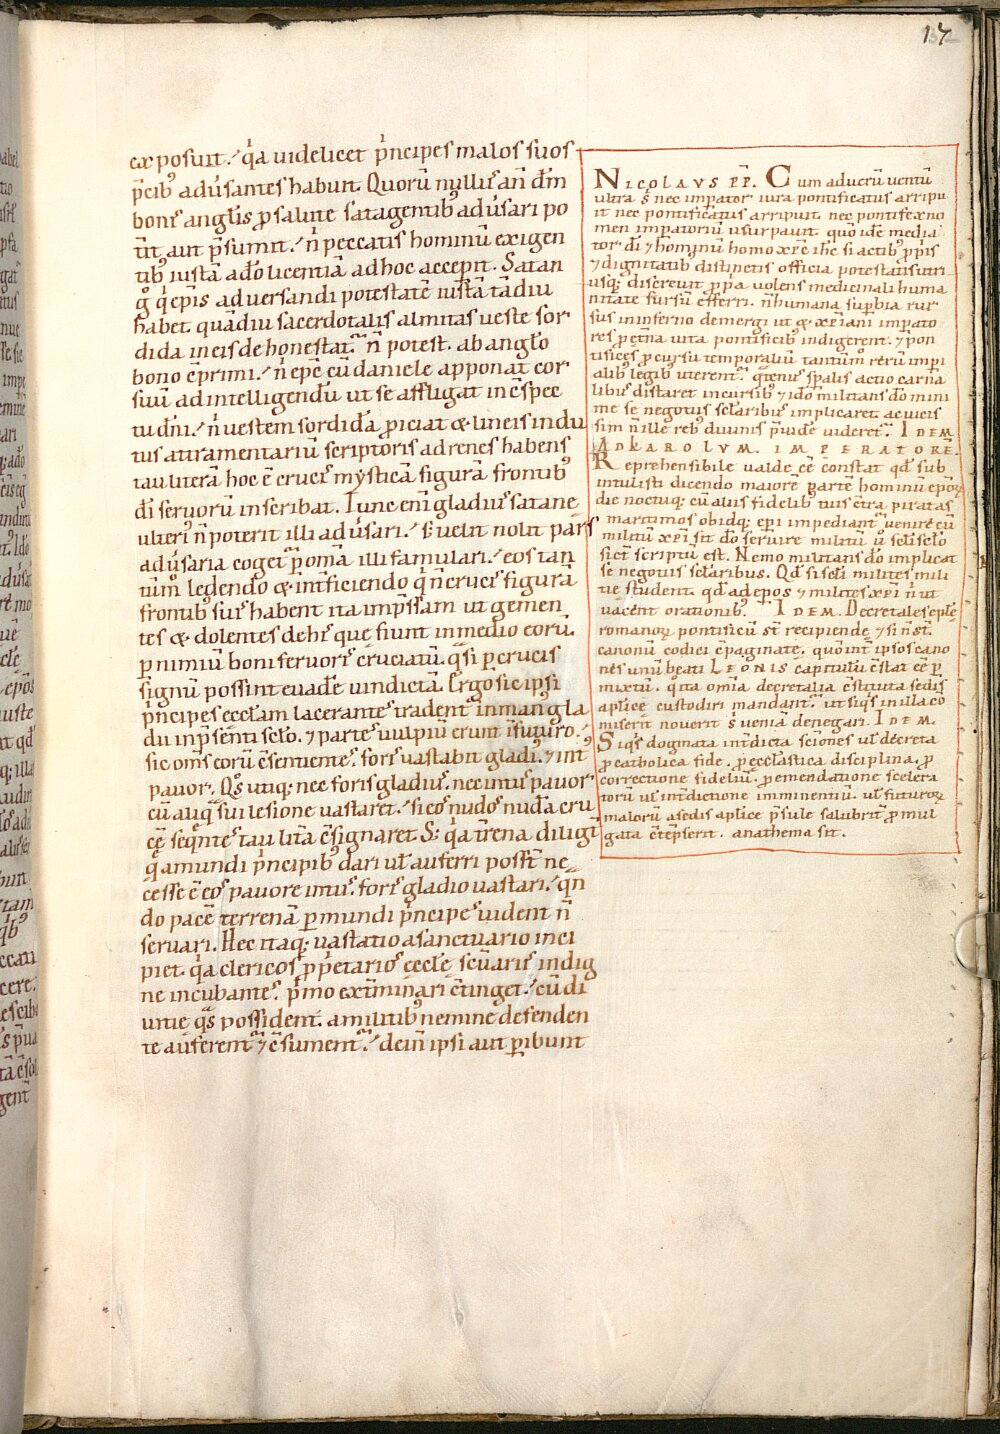 17
exposuit. q̇a uidelicet p̍ncipes malos suos
p̄cib; aduꝰsantes habuit. Quorū nullisͥ an̄ dm̄
bonisͥ anglis ꝓ salute satagentib; aduꝰsari po
tūt aut p̄sumūt. n̄ peccatis hominū exigen
tib; iustā a dō licentiā ad hoc accepit. Satan
g̊ q̍ ep̄is aduersandi potestatē iustā tādiu
habet. quādiu sacerdotalis almitas ueste sor
dida in eis dehonestat᷑. n̄ potest. ab anglo
bono cp̄rimi. n̄ epc̄ cū daniele apponat cor
suū ad intelligendū ut se affligat in cspec
tu dn̄i. n̄ uestem sordidā ꝓiciat & lineis indu
tus attramentariū scriptoris ad renes habens
tau literā hoc ē crucis mysticā figurā frontib;
di seruorū inscribat. Tunc enī gladius satane
ulteri n̄ poterit illi aduꝰsari. s; uelit nolit pars
aduꝰsaria coget᷑ ꝑ omā illi famulari. eos tan
tūm legendo & int̄ficiendo q̍ n̄ crucis figurā
frontib; suis habent ita imp̄ssam ut gemen
tes & dolentes de his que fiunt in medio eorū.
ꝑ nimiū boni seruoris cruciatū. q̄si ꝑ crucis
signū possint euadē uindictā. Ergo sic ipsi
p̍ncipes eccl̄am lacerantes tradent᷑ in man gla
dii in p̄senti sclo. ⁊ partes uulpiū erunt ī futuro.
sic om̄s eorū c̄sentientes. foris uastabit gladi; ⁊ int
pauor. Qͦs utiq; nec foris gladius. nec intus pauor
cū aliq̄ sui lesione uastaret. si cor nudos nudā cru
cē seq̄nte tau litā c̄signaret S; q̍a t̄rena diligī
q̄ a mundi p̍ncipib; dari ul̄ auferri poss̄t ne
cesse ē eos pauore intus. foris gladio uastari. q̄n
do pacē terrenā ꝑ mundi p̍ncipes uident n̄
seruari. Hec itaq; uastatio a sanctuario inci
piet. q̍a clericos ꝓp̍etarios eccl̄e scuāris indig
ne incubantes. p̍mo ext̄minari c̄tinget. cū di
uitie q̄s possident. a militib; nemine defenden
te auferent᷑ ⁊ c̄sument᷑. dein̄ ipsi aut ꝑibunt
NICOLAVS PP. Cum ad uerū uentū
ultra s̄ nec impator iura pontificatus arripu
it nec pontificatus arripuit nec pontifex no
men imꝑatoriū usurpauit. quō idē media
tor dī ⁊ hominū homo xp̄c ihc si actib; ꝓpiis
⁊ dignitatib distinctis officia potestatis utri
usq; discreuit ꝓp̄a uolens medicinali huma
nitate sursū efferri. n̄ humana supbia rur
sus in inferno demergi ut & xp̄iani impato
res ꝓ et̄na uita pontificib; indigerent. ⁊ pon
tifices ꝓ cursu temporaliū tantūm rerū impi
alib; legib; uterent᷑. q̄tenus sp̄alis actio carna
lib; distaret incursib; ⁊ idō militans dō mini
me se negotiis sclarib; implicaret. ac uicis
sim n̄ ille reb; diuinis p̄sidē uideret᷑. IDEM
AD KAROLVM IMPERATORĒ.
Reprehensibile ualde eē constat qd̄ sub
intulisti dicendo maiorē partē hominū epōꝝ
die noctuq; cū aliis fidelib; tuis c̄tra piratas
maritimos obidq; epi impediant᷑ uenire cū
militū xp̄i sit dō seruire militū u̓ scli sclo
sic̄t scriptū est. Nemo militans dō implicat
se negotiis sclaribus. Qd̄ si scli milites mili
tie student. qd̄ ad epos ⁊ milites xp̄i n̄ ut
uacent orationib;. IDEM. Decretales eple
romanoꝝ pontificū st̄ recipiende ⁊ si n̄ st̄.
canonū codici c̄paginate. quō int̄ ipsos cano
nes unū beati LEONIS capitulū c̄stat eē ꝑ
mixtū. q̍ ita om̄ia decretalia c̄stituta sedis
aplice custodiri mandant᷑. ut siqͥs in illa cō
miserit nouerit s̄ ueniā denegari. IDEM.
Siqͥs dogmata int̄dicta sc̄iones ul̄ decreta
ꝓ catholica fide. ꝓ eccl̄astica disciplina. ꝓ
correctione fideliū. ꝓ emendatione scelera
torū ul̄ int̄dictione imminentiū. ul̄ futuroꝝ
maloꝝ a sedis aplice p̄sule salubrit̄ ꝓmul
gata c̄tēpserit. anathema sit.